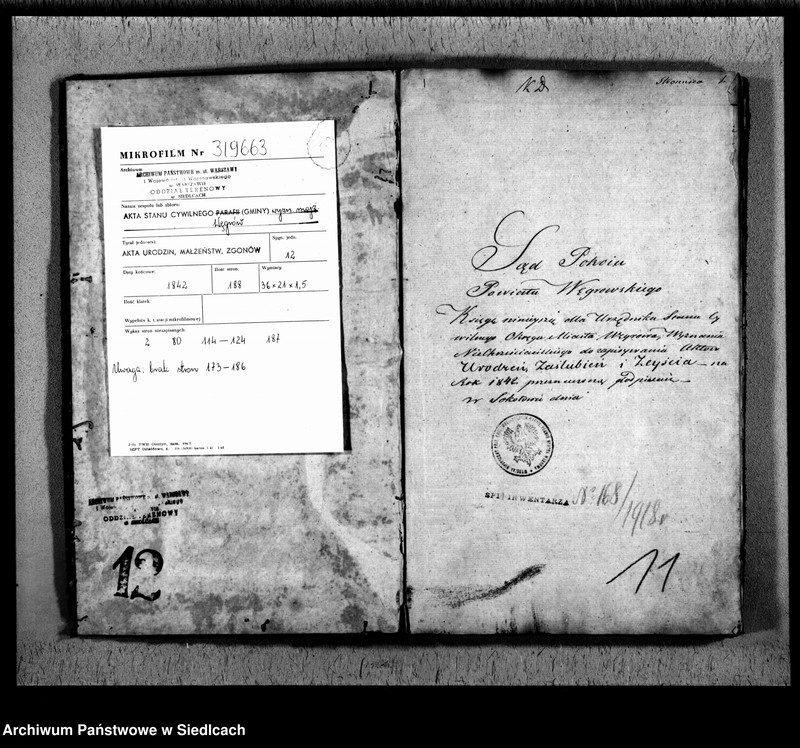 MIKROFILM Nr 319663
Archiwum
ARCHIWUM PAŃSTWOWE m. st. WARSZAWY
i Województwa Warszawskiego
w WARSZAWIE
ODDZIAŁ TERENOWY
w SIEDLCACH
Nazwa zespołu lub zbioru:
AKTA STANU CYWILNEGO PARAFII (GMINY) wyzn. mojż
Węgrów
Tytuł jednostki:
AKTA URODZIN, MAŁŻEŃSTW, ZGONÓW
Sygn. jedn.
12
Daty końcowe:
1842
Ilość stron:
188
Wymiary:
36×21×1,5
Ilość klatek:
Wypełnia k. z stacji mikrofilmowej
Wykaz stron niezapisanych:
2 80 114-124 187
Uwaga: brak stron 173-186
ARCHIWUM PAŃSTWOWE m. st. WARSZAWY
ODDZIAŁ TERENOWY
12
Stronnica 1.
Sąd Pokoiu
Powiatu Węgrowskiego
Księgę ninieyszą dla Urzędnika Stanu Cy
wilnego Okręgu Miasta Węgrowa, Wyznania
Niechrześciańskiego do zapisywania Aktów
Urodzeń, Zaślubień i Zeyścia na
Rok 1842 przeznaczoną podpisuie
w Sokołowie dnia
SPIS INWENTARZA No 168/
1918 r
11
Archiwum Państwowe w Siedlcach